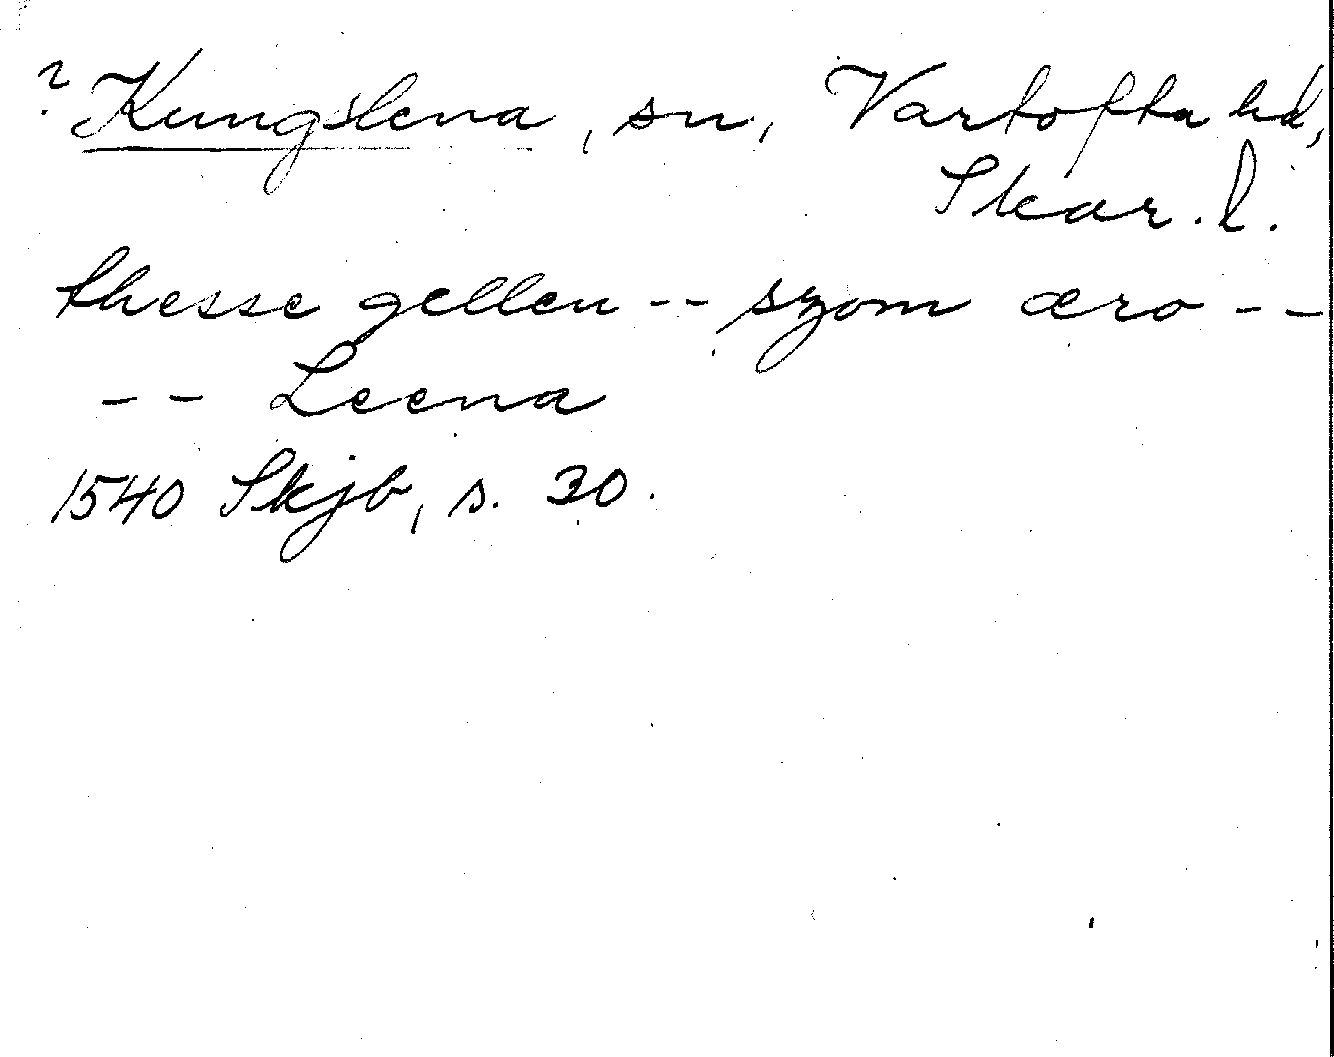 ? Kungslena, sn, Vartofta hd,
Skar. l.
thesse gellen -- szom æro --
-- Leena
1540 Skjb, s. 30.